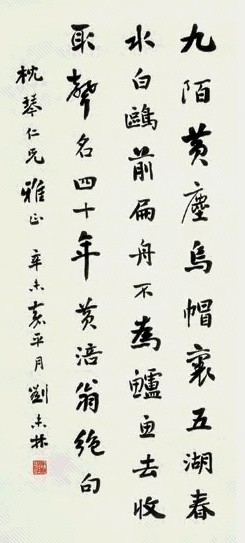 九陌黄塵烏帽裏五湖春
水白鷗前扁舟不為鱸魚去收
取聲名四十年黄涪翁絶句
枕琴仁兄雅正 辛未嘉平月劉未林